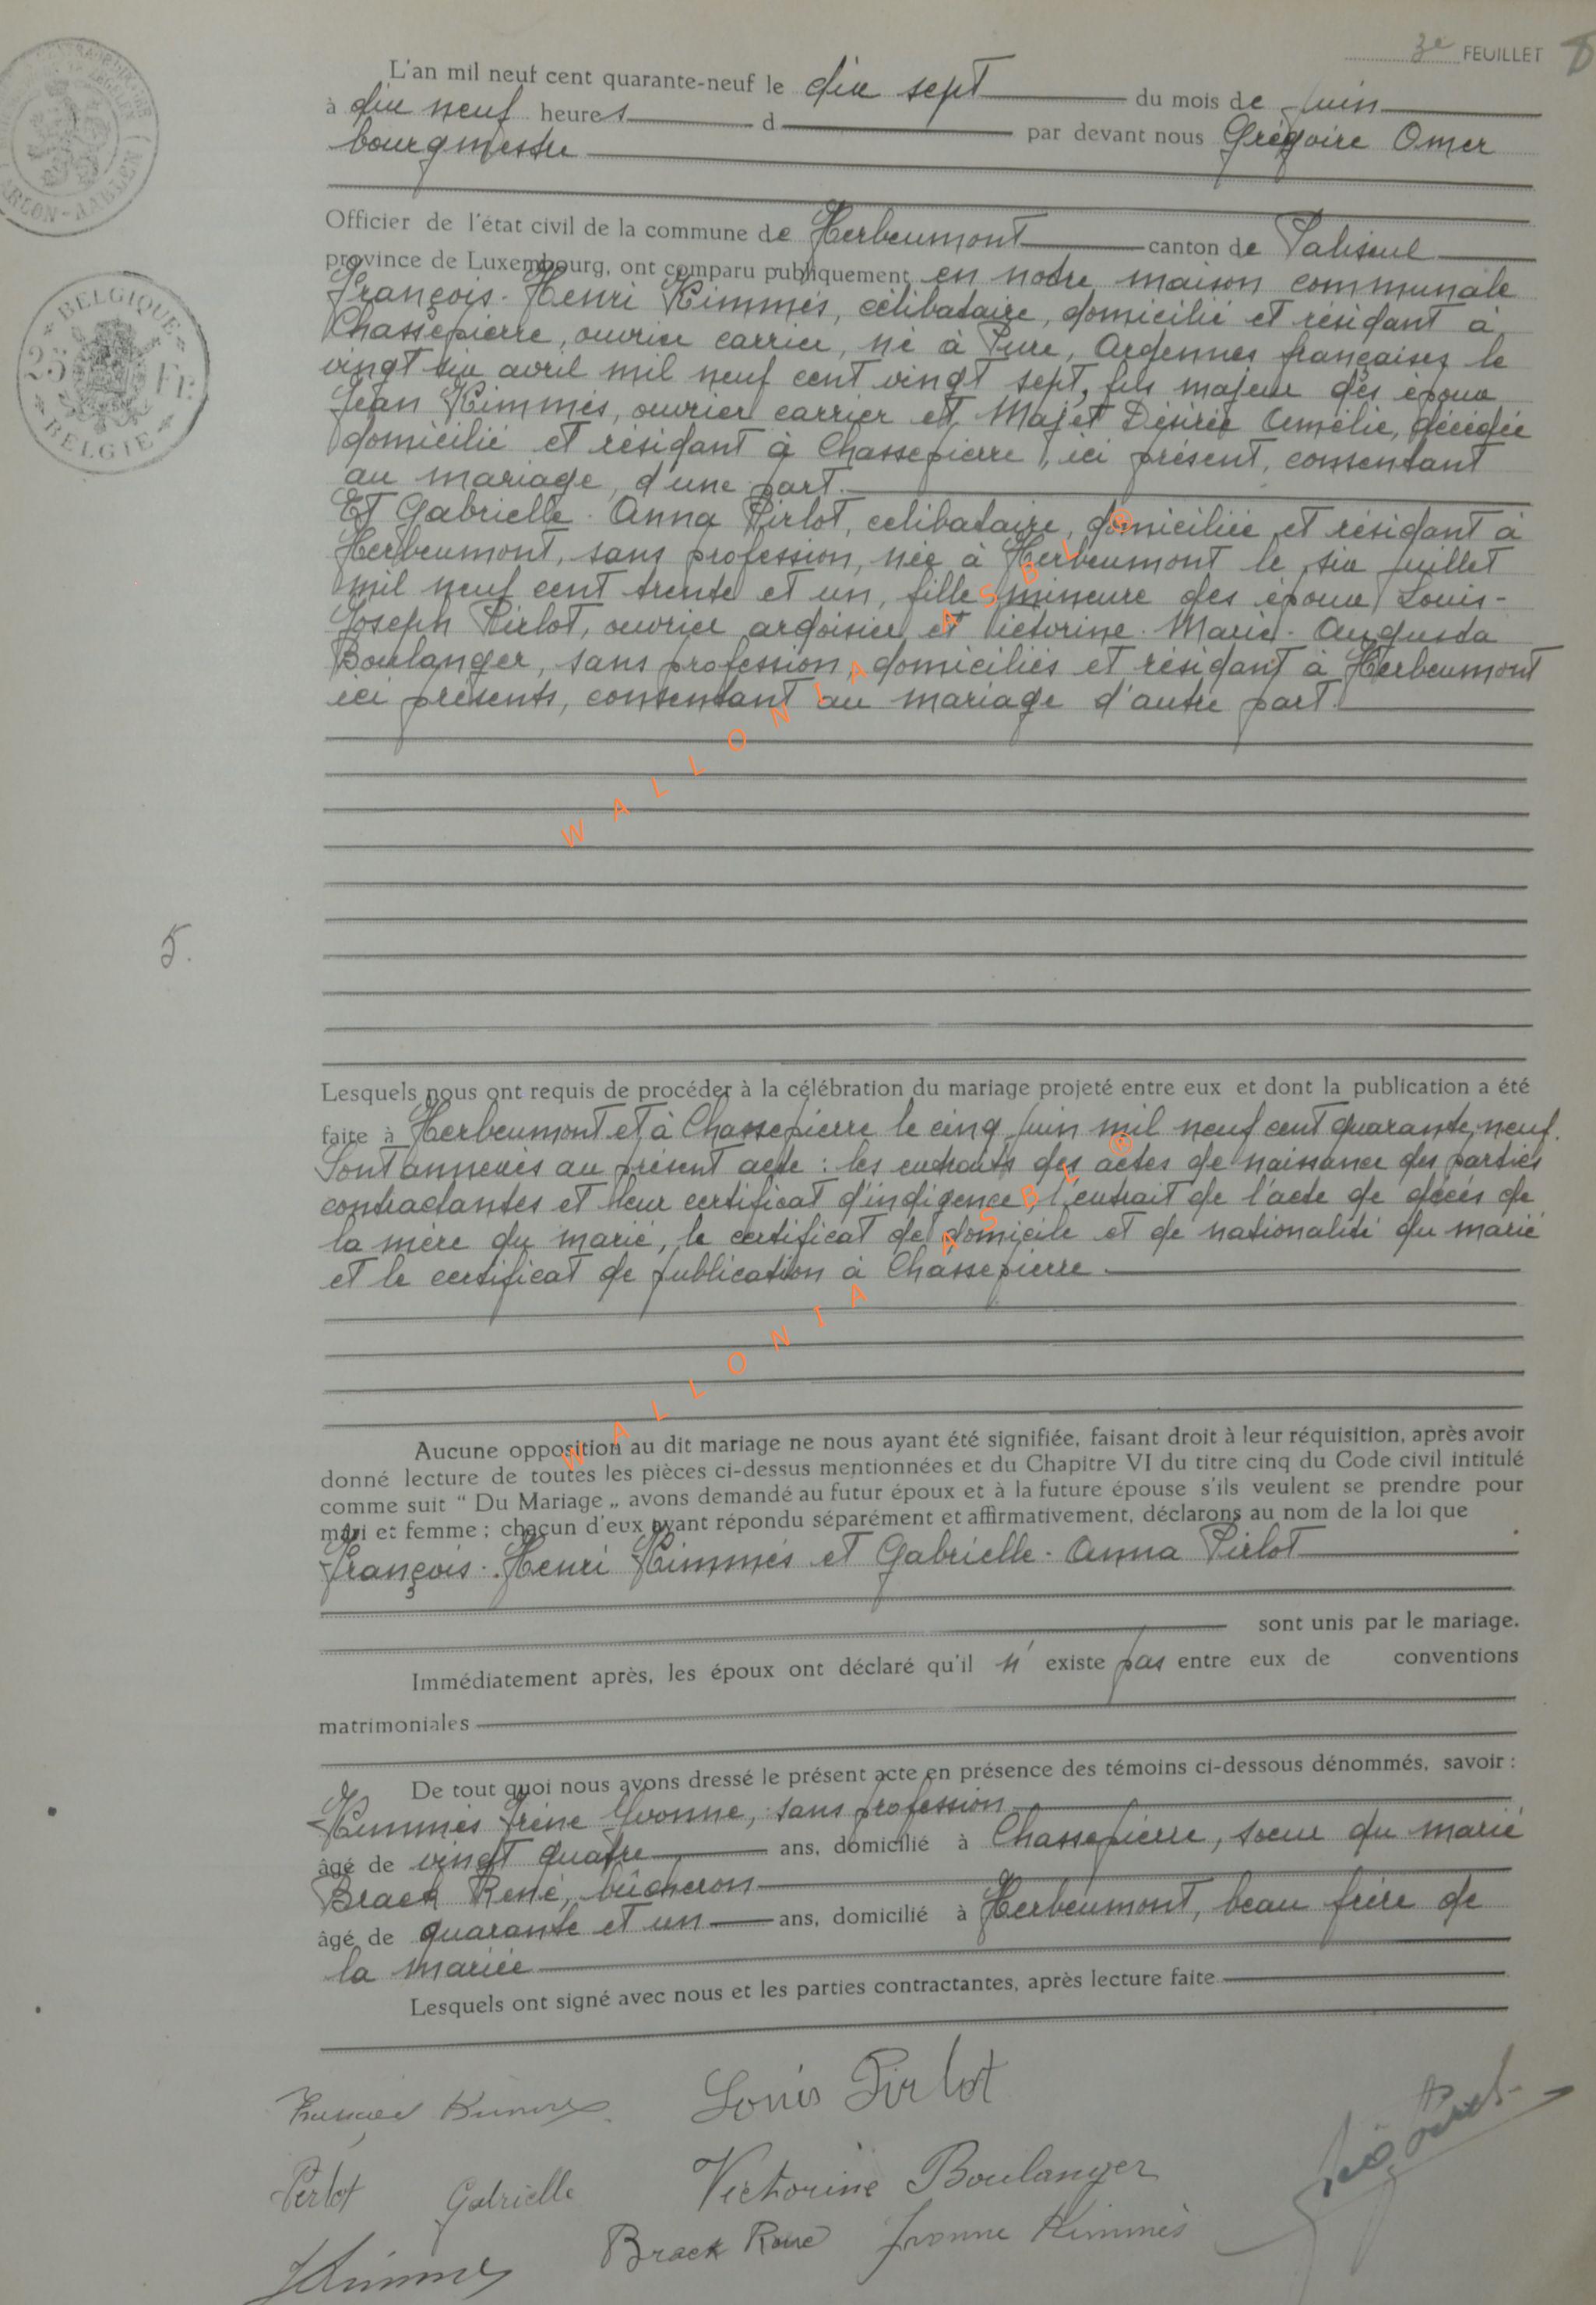 3e FEUILLET 8
L'an mil neuf cent quarante-neuf le dix sept du mois de Juin
à dix neuf heures d par devant nous Grégoire Omer
bourgmestre
Officier de l'état civil de la commune de Herbeumont canton de Paliseul
province de Luxembourg, ont comparu publiquement en notre maison communale
François-Henri Kimmès, célibataire, domicilié et résidant à
Chassepierre, ouvrier carrier, né à Pure, Ardennes françaises le
vingt six avril mil neuf cent vingt sept, fils majeur des époux
Jean Kimmès, ouvrier carrier et Majet Désirée Amélie, décédée
domicilié et résidant à Chassepierre, ici présent, consentant
au mariage, d'une part.
Et Gabrielle-Anna Pirlot, célibataire, domiciliée et résidant à
Herbeumont, sans profession, née à Herbeumont le six juillet
mil neuf cent trente et un, fille mineure des époux Louis-
Joseph Pirlot, ouvrier ardoisier et Victorine-Marie-Augusta
Boulanger, sans profession, domiciliés et résidant à Herbeumont
ici présents, consentant au mariage d'autre part.
5.
Lesquels nous ont requis de procéder à la célébration du mariage projeté entre eux et dont la publication a été
faite à Herbeumont et à Chassepierre le cinq juin mil neuf cent quarante neuf.
Sont annexés au présent acte : les extraits des actes de naissance des parties
contractantes et leur certificat d'indigence, l'extrait de l'acte de décès de
la mère du marié, le certificat de domicile et de nationalité du marié
et le certificat de publication à Chassepierre.
Aucune opposition au dit mariage ne nous ayant été signifiée, faisant droit à leur réquisition, après avoir
donné lecture de toutes les pièces ci-dessus mentionnées et du Chapitre VI du titre cinq du Code civil intitulé
comme suit " Du Mariage „ avons demandé au futur époux et à la future épouse s'ils veulent se prendre pour
mari et femme ; chacun d'eux ayant répondu séparément et affirmativement, déclarons au nom de la loi que
François-Henri Kimmès et Gabrielle-Anna Pirlot
sont unis par le mariage.
Immédiatement après, les époux ont déclaré qu'il n' existe pas entre eux de conventions
matrimoniales
De tout quoi nous avons dressé le présent acte en présence des témoins ci-dessous dénommés, savoir :
Kimmès Irène Yvonne, sans profession
âgé de vingt quatre ans, domicilié à Chassepierre, soeur du marié
Braek René, bûcheron
âgé de quarante et un ans, domicilié à Herbeumont, beau frère de
la mariée
Lesquels ont signé avec nous et les parties contractantes, après lecture faite
François Kimmes Louis Pirlot
Pirlot Gabrielle Victorine Boulanger
Kimmes Braek René Yvonne Kimmès
BELGIQUE
25 FR
BELGIE
ARLON-AARLEN
WALLONIA ASBL ®
WALLONIA ASBL ®